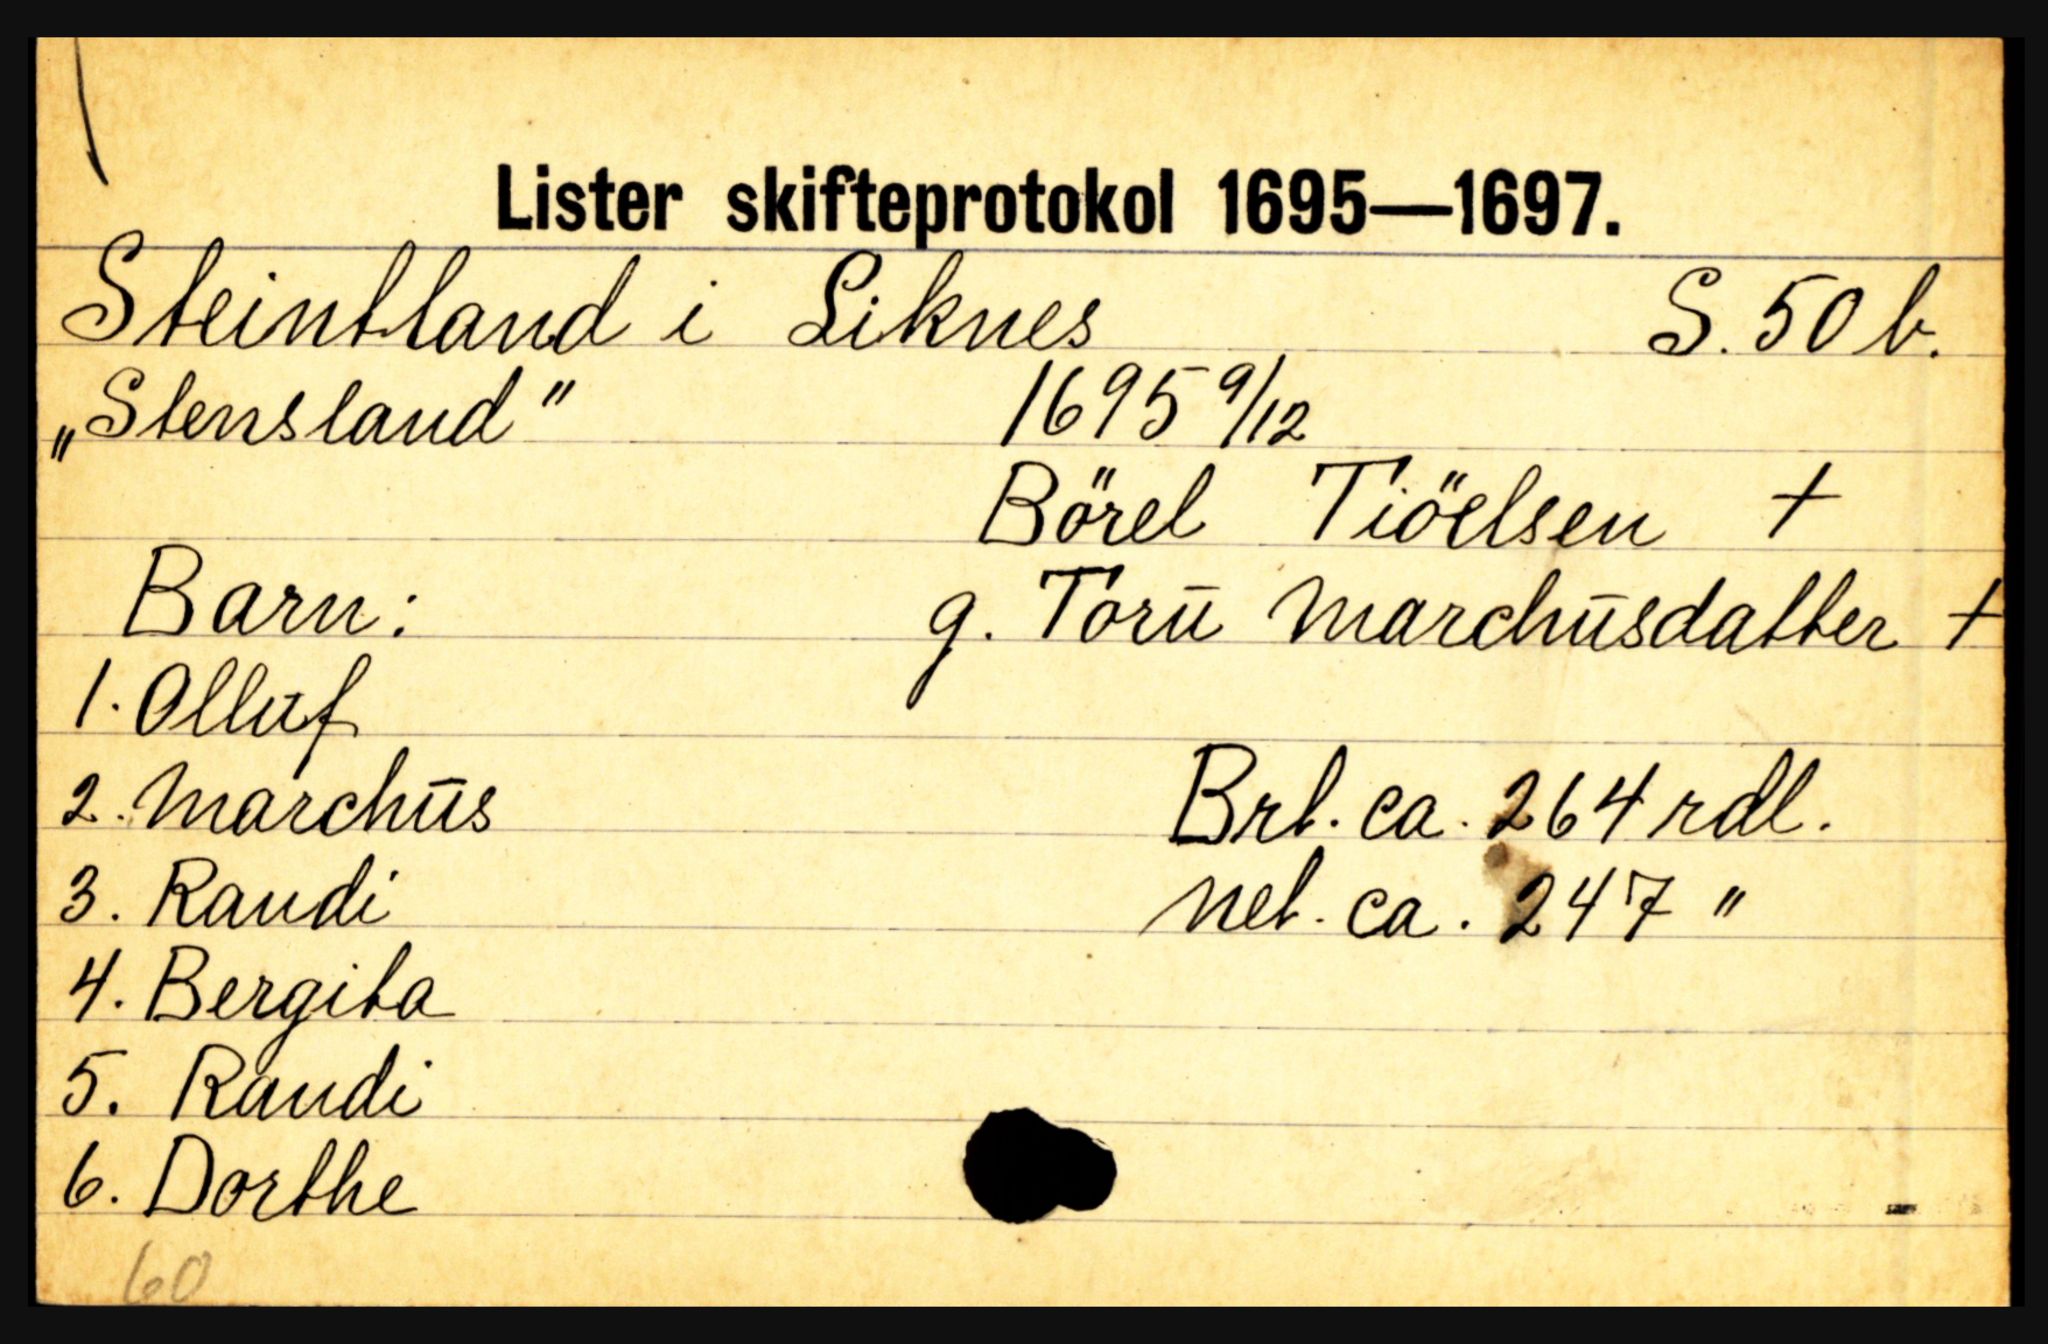 Lister skifteprotokol 1695—1697.
Steintland i Liknes S. 50 b.
„Stensland" 1695 9/12
Börel Tiöelsen +
Barn: g. Torū Marchūsdatter +
1. Ollūf
2. Marchūs Brt. ca. 264 rdl.
3. Randi net. ca. 247 "
4. Bergita
5. Randi
6. Dorthe
60